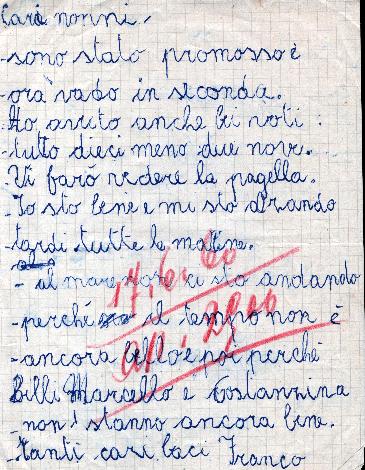 Cari nonni,
-sono stato promosso è
-ora vado in seconda.
Ho avuto anche bei voti:
-tutto dieci meno due nove.
-Vi farò vedere la pagella.
-Io sto bene e mi sto alzando
-tardi tutte le matine.
- al mare non ci sto andando
-perché il tempo non è
-ancora bello e poi perché
Billi Marcello e Costanzina
-non stanno ancora bene.
-Tanti cari baci Franco
17.6.60